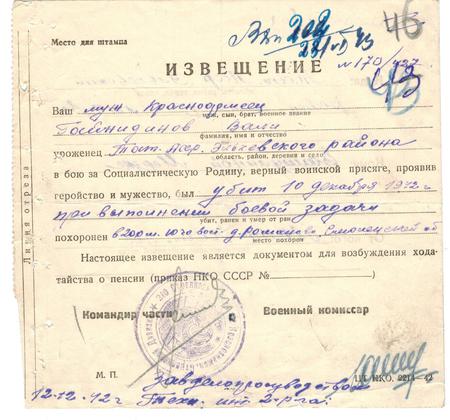 Место для штампа
46
43
ИЗВЕЩЕНИЕ
№ 170/
Ваш муж Красноармеец
муж, сын, брат, военное звание
Вали
фамилия, имя и отчество
уроженец района
область, район, деревня и село
в бою за Социалистическую Родину, верный воинской присяге, проявив
геройство и мужество, был убит 10 декабря 1942 г
убит, ранен и умер от ран
при выполнении боевой задачи
похоронен в 200 м. юго вост. д. Романово, Смоленской об
место похорон
Настоящее извещение является документом для возбуждения хода-
тайства о пенсии (приказ НКО СССР №
Линия отреза
Командир части
Военный комиссар
М. П.
НКО. 2214—42
Зав делопроизводством
12.12.42г Техн. инт 2-р